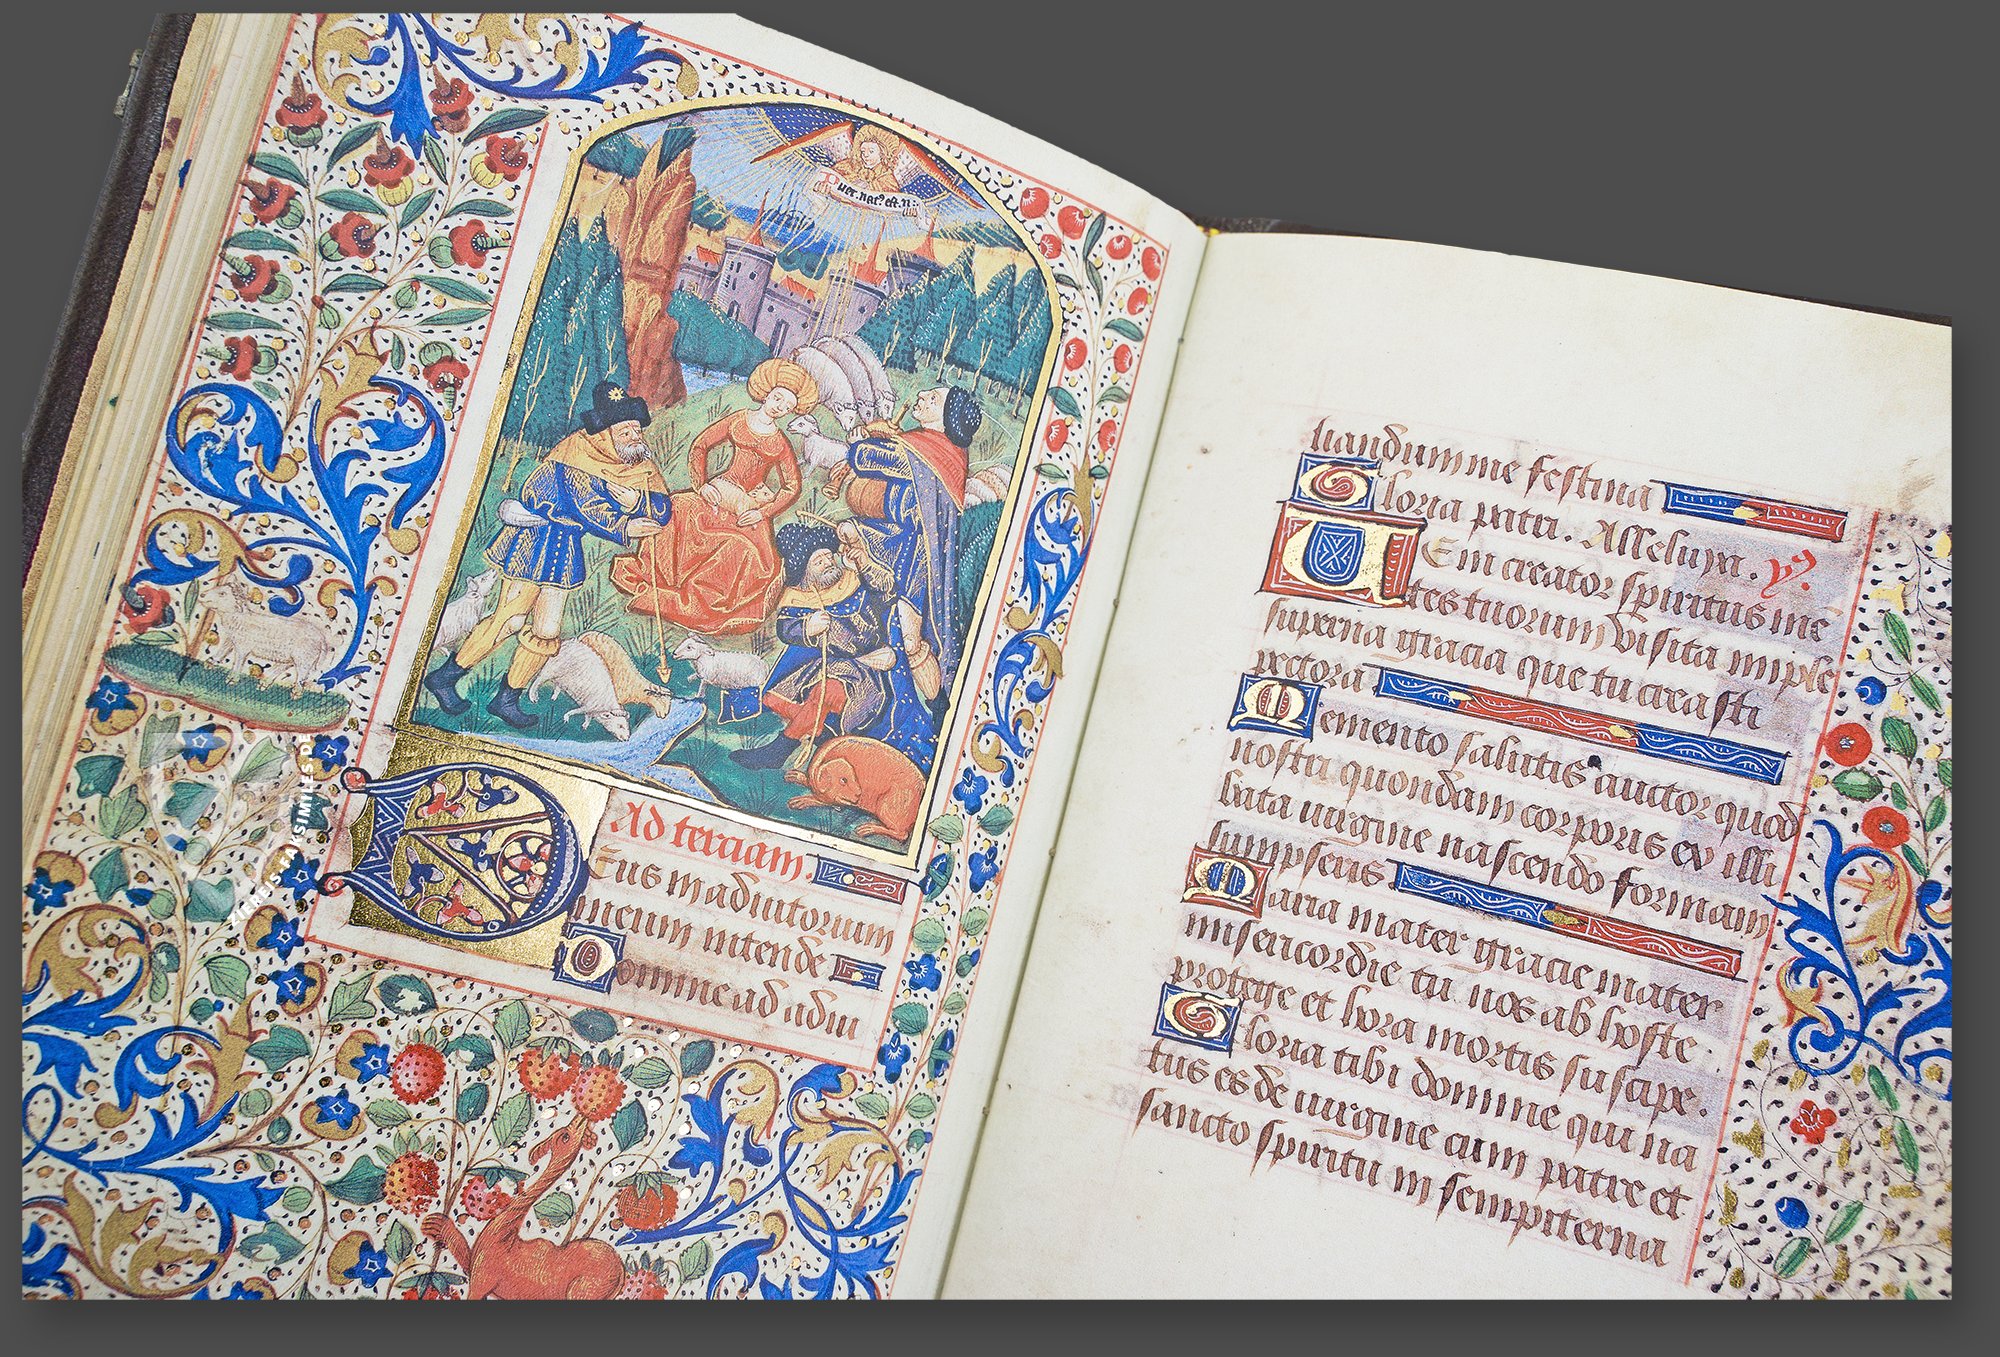 Puer. nat⁹ est. n
Ad terciam.
Deus in adiutorium
meum intende
Domine ad adiu
uandum me festina
Gloria patri. Alleluya. yͫ.
Veni creator spiritus mē
tes tuorum visita imple
superna gracia que tu creasti
pectora
Memento salutis auctor quod
nostri quondam corporis ex illi
bata uirgine nascendo formam
sumpseris
Maria mater gracie mater
misericordie tu nos ab hoste
protege et hora mortis suscipe.
Gloria tibi domine qui na
tus es de uirgine cum patre et
sancto spiritu in sempiterna
ZIEREIS FAKSIMILES.DE